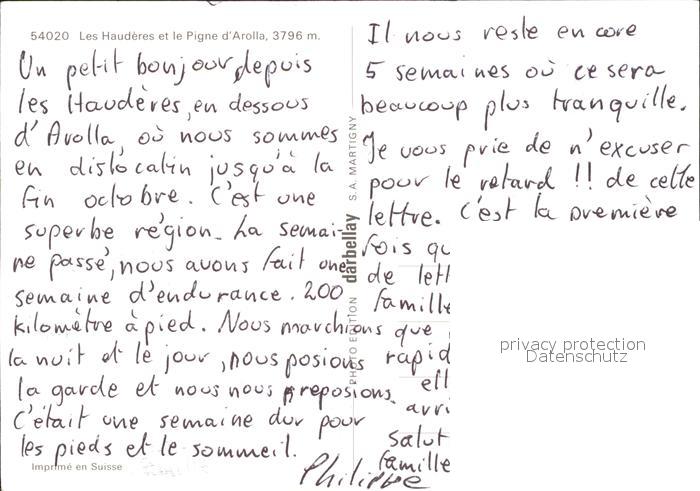 54020 Les Haudères et le Pigne d'Arolla, 3796 m.
Un petit bonjour, depuis
les Haudères, en dessous
d'Arolla, où nous sommes
en dislocatin jusqu'à la
fin octobre. C'est une
superbe région. La semai-
ne passé, nous avons fait une
semaine d'endurance. 200
kilomètre à pied. Nous marchions
la nuit et le jour, nous posions
la garde et nous nous reposions.
C'était une semaine dur pour
les pieds et le sommeil.
Imprimé en Suisse
PHOTO EDITION darbellay S.A. MARTIGNY
Il nous reste encore
5 semaines où ce sera
beaucoup plus tranquille.
Je vous prie de n'excuser
pour le retard !! de cette
lettre. C'est la première
fois qu
de lett
famille
que
rapid
ell
arri
Salut
famille
Philippe
privacy protection
Datenschutz